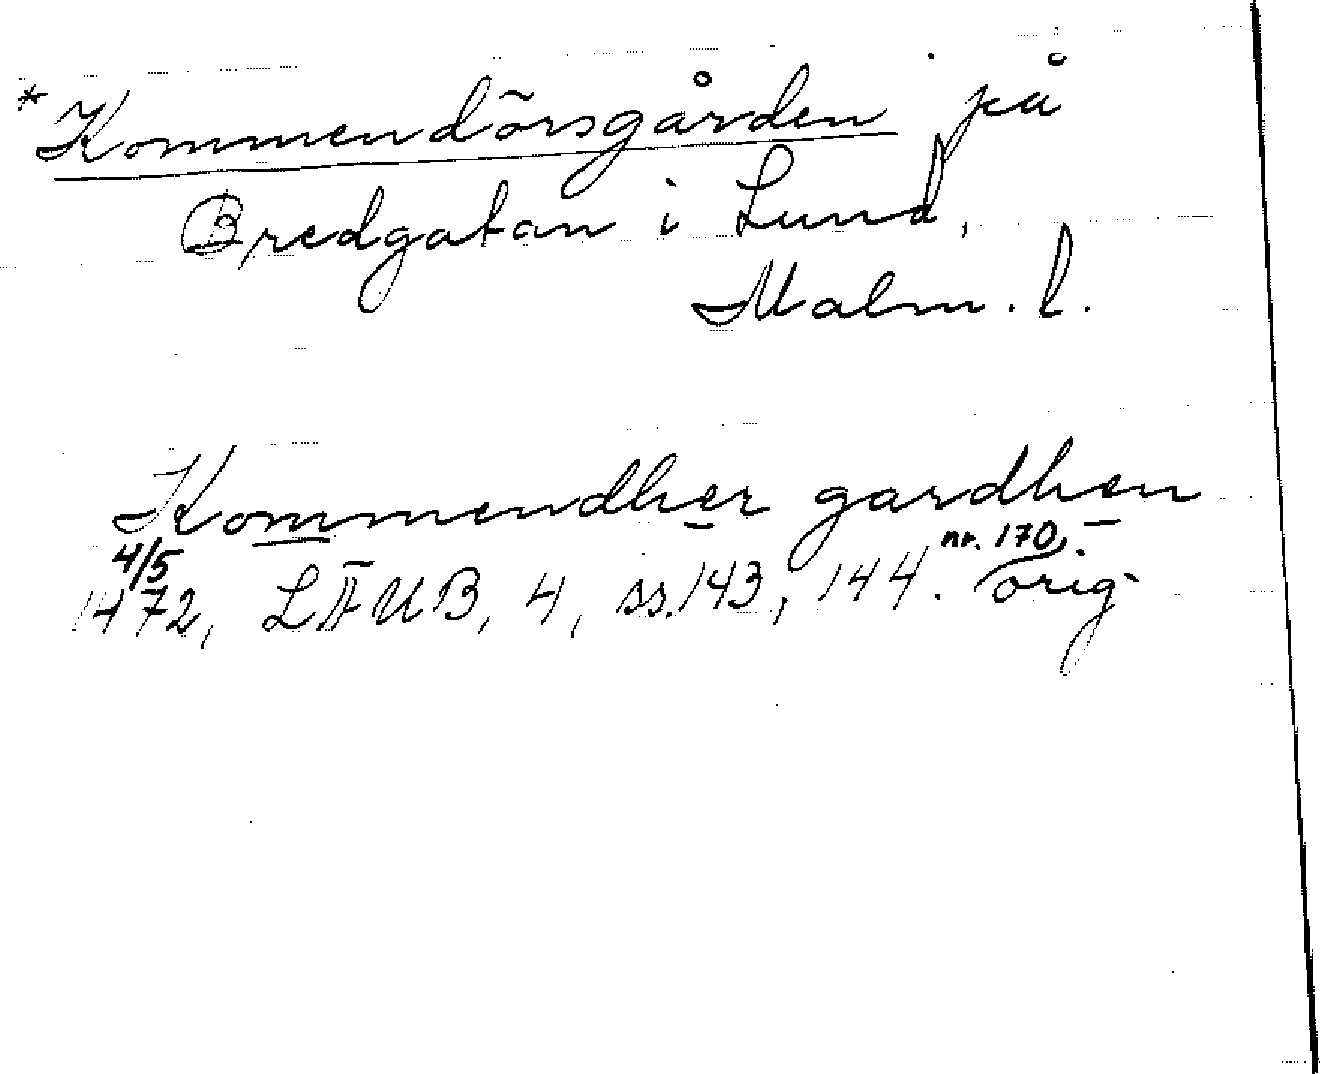 *Kommendörsgården på
Bredgatan i Lund,
Malm. l.
Kommendher gardhen
4/5 nr. 170,
1472, LÄUB, 4, ss. 143, 144. orig.